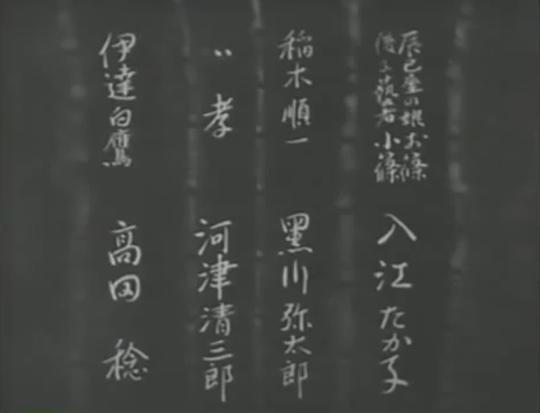 辰巳屋の娘お篠
後に藝者小篠
入江たか子
稲木順一
黒川弥太郎
〃孝
河津清三郎
伊達白鷹
高田稔